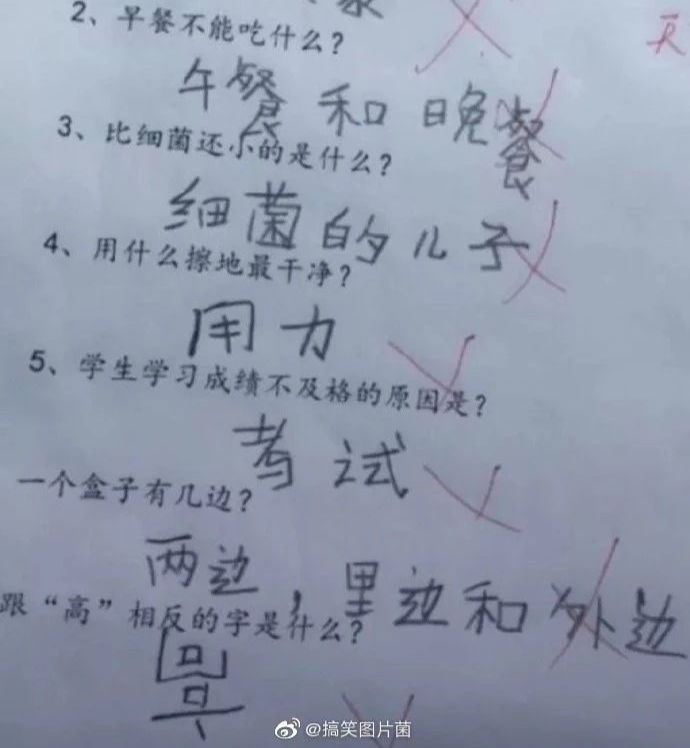 2、早餐不能吃什么?
午餐和晚餐
3、比细菌还小的是什么?
细菌的儿子
4、用什么擦地最干净?
用力
5、学生学习成绩不及格的原因是?
考试
一个盒子有几边?
两边，里边和外边
跟“高”相反的字是什么?
@搞笑图片菌